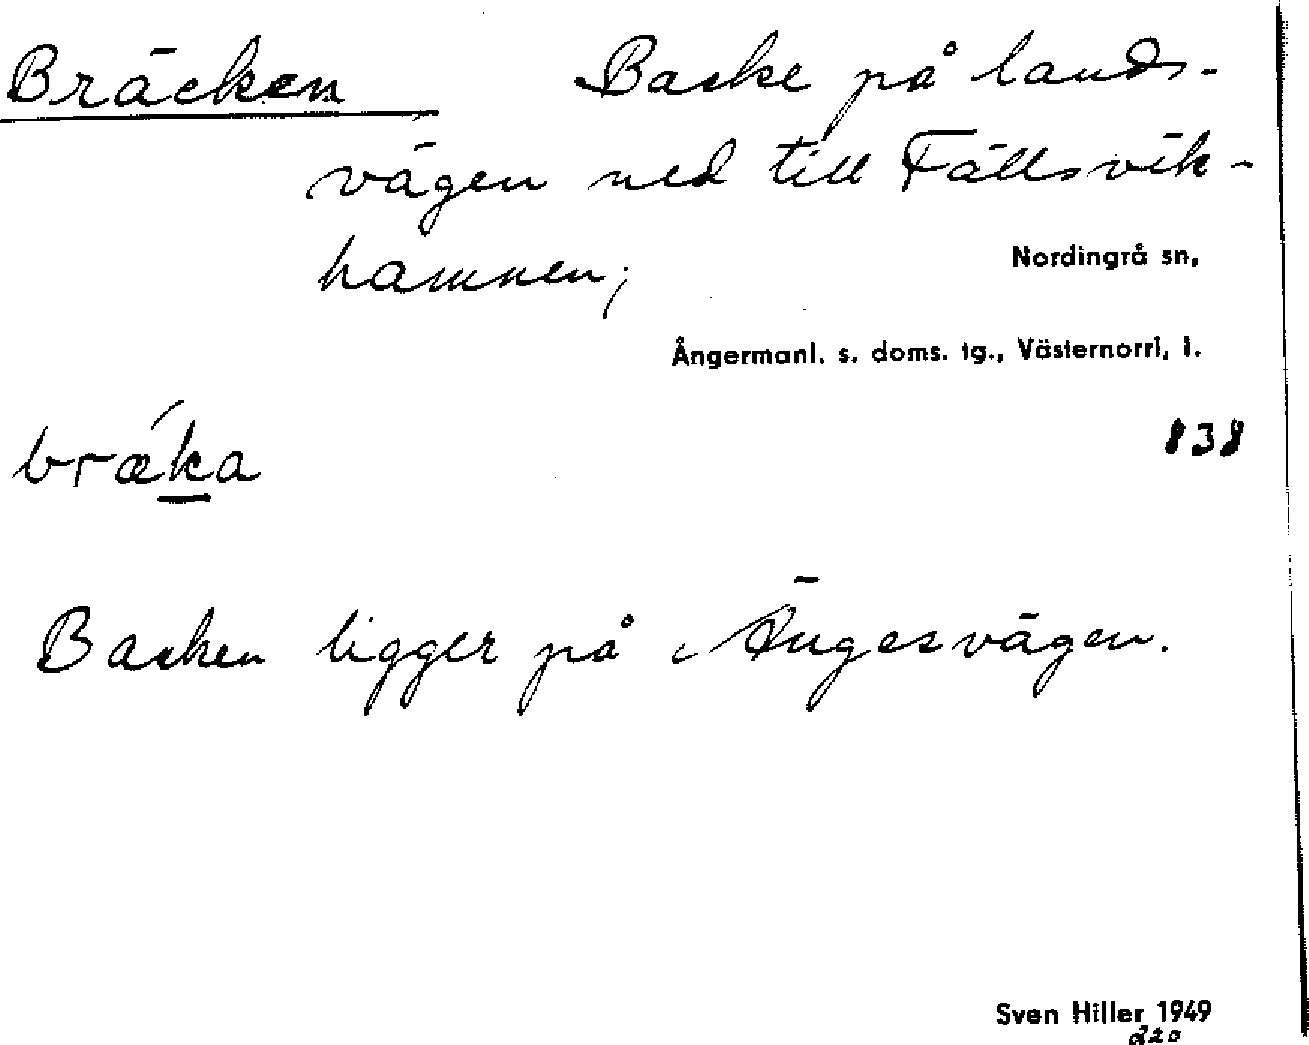 Bräcken Backe på lands-
vägen ned till Fällsvik-
hamnen;
Nordingrå sn,
Ångermanl. s. doms. tg., Västernorrl. l.
838
brǽka
Backen ligger på Ängesvägen.
Sven Hiller 1949
220